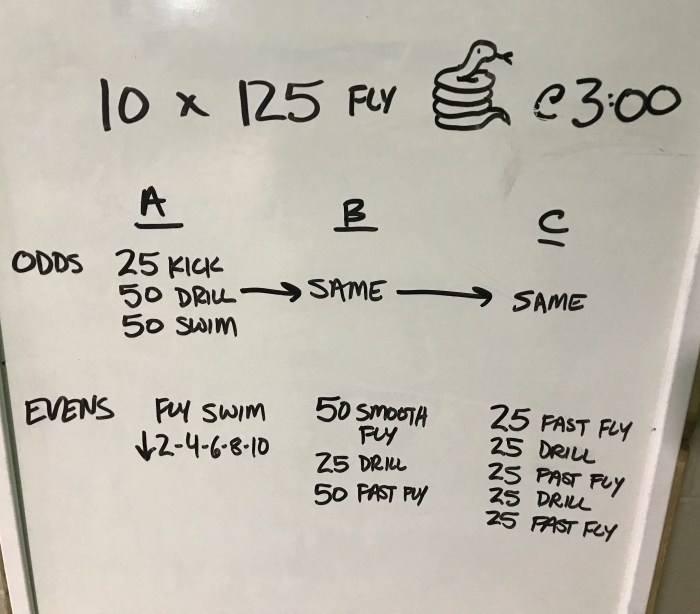 10 x 125 FLY @ 3:00
A B C
ODDS 25 KICK
50 DRILL → SAME → SAME
50 SWIM
EVENS FLY SWIM
↓2-4-6-8-10
50 SMOOTH
FLY
25 DRILL
50 FAST FLY
25 FAST FLY
25 DRILL
25 FAST FLY
25 DRILL
25 FAST FLY